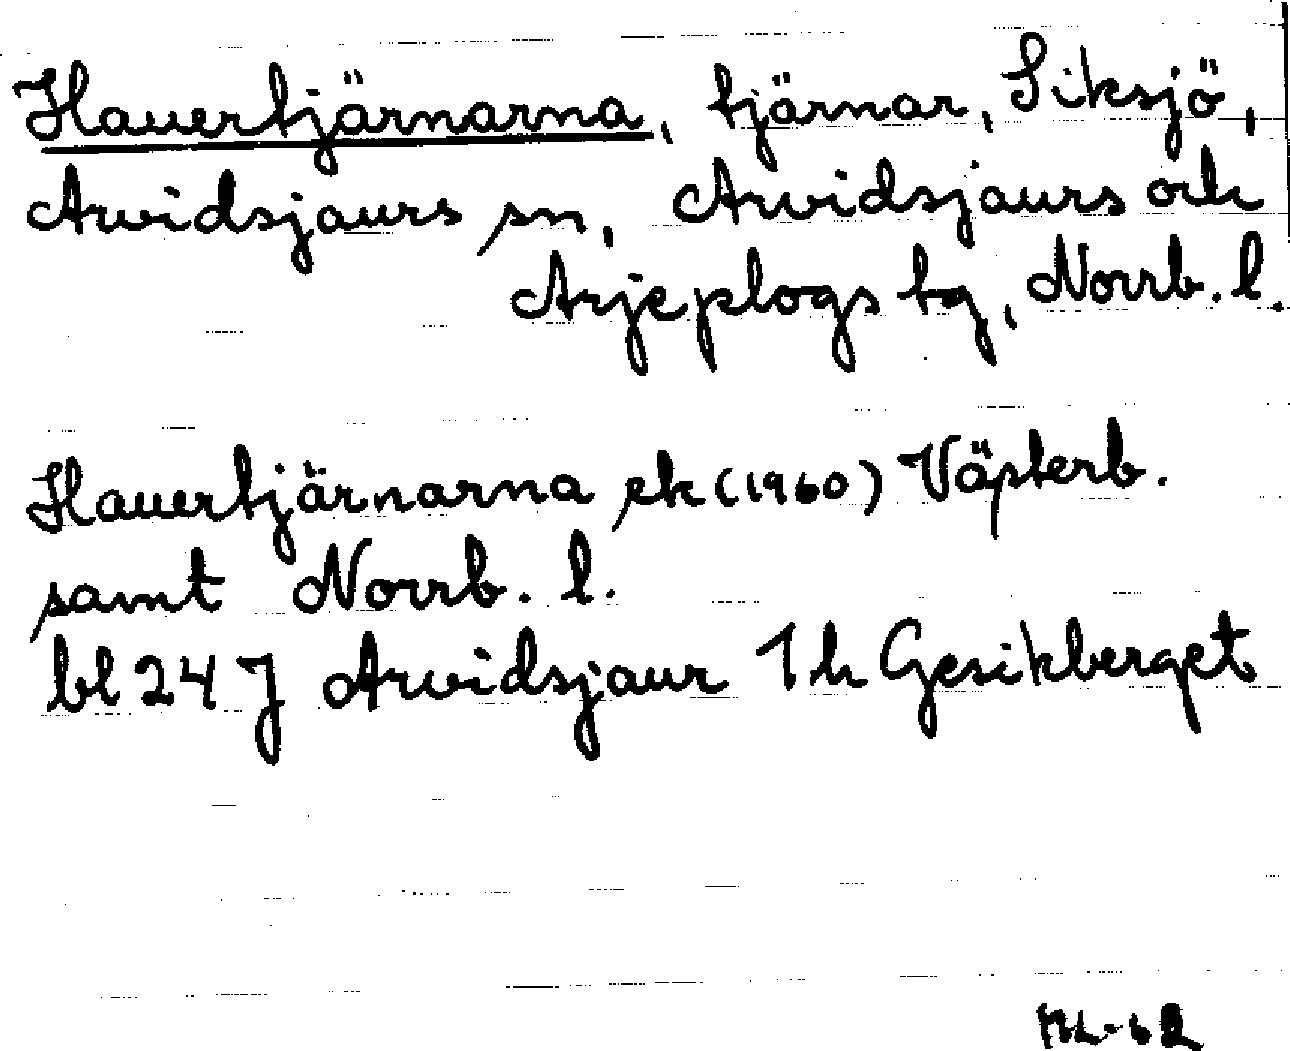 Havertjärnarna, tjärnar, Siksjö,
Arvidsjaurs sn, Arvidsjaurs och
Arjeplogs tg, Norrb. l.
Havertjärnarna ek (1960) Västerb.
samt Norrb. l.
bl 24 J Arvidsjaur 1 h Gesikberget